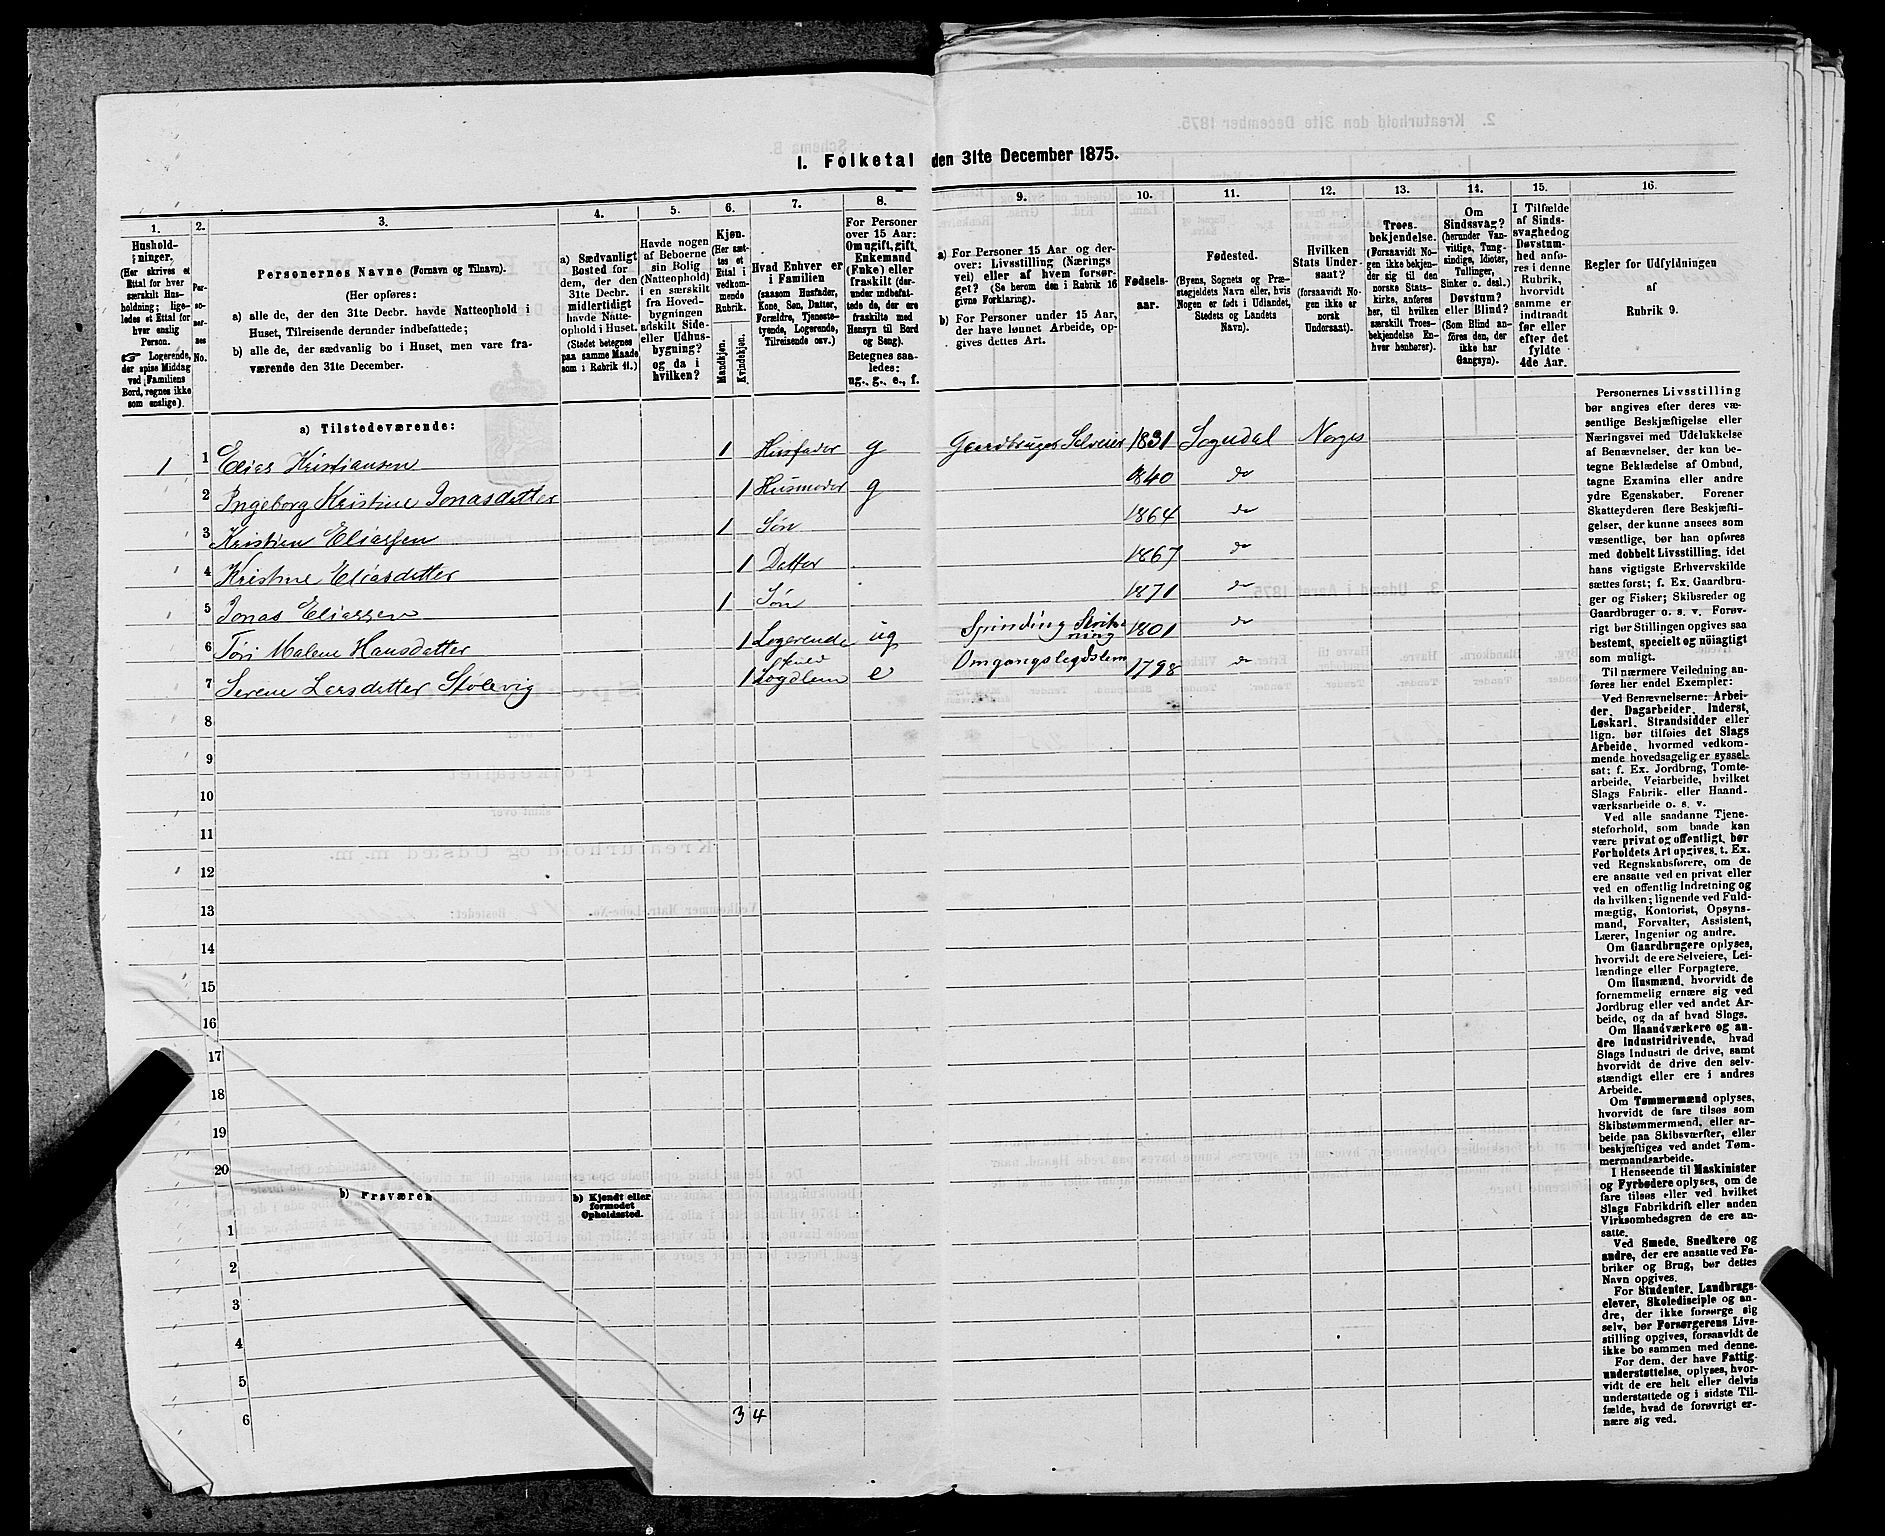 1. Folketal den 31te December 1875.
1. 2. 3. 4. 5. 6. 7. 8. 9. 10. 11. 12. 13. 14. 15. 16.
Hushold-
ninger.
(Her skrives et
Ettal for hver
særskilt Hus-
holdning; lige-
ledes et Ettal for
hver enslig
Person.
☞ Logerende,
der spise Middag
ved Familiens
Bord, regnes ikke
som enslige).
Per-
so-
ner-
nes
No.
Personernes Navne (Fornavn og Tilnavn).
(Her opføres:
a) alle de, der den 31te Decbr. havde Natteophold i
Huset, Tilreisende derunder indbefattede;
b) alle de, der sædvanlig bo i Huset, men vare fra-
værende den 31te December.
a) Sædvanligt
Bosted for
dem, der den
31te Decbr.
midlertidigt
havde Natte-
ophold i Huset.
(Stedet betegnes
paa samme Maade
som i Rubrik 11.)
Havde nogen
af Beboerne
sin Bolig
(Natteophold)
i en særskilt
fra Hoved-
bygningen
adskilt Side-
eller Udhus-
bygning?
og da i
hvilken?
Kjøn.
(Her sæt-
tes et
Ettal i
vedkom-
mende
Rubrik.
Mandkjøn.
Kvindekjøn.
Hvad Enhver er
i Familien
(saasom Husfader,
Kone, Søn, Datter,
Forældre, Tjeneste-
tyende, Logerende,
Tilreisende osv.)
For Personer
over 15 Aar:
Om ugift, gift,
Enkemand
(Enke) eller
fraskilt (der-
under indbefat-
tede de, der ere
fraskilte med
Hensyn til Bord
og Seng).
Betegnes saa-
ledes:
ug., g., e., f.
a) For Personer 15 Aar og der-
over: Livsstilling (Nærings
vei) eller af hvem forsør-
get? (Se herom den i Rubrik 16
givne Forklaring).
b) For Personer under 15 Aar,
der have lønnet Arbeide, op-
gives dettes Art.
Fødsels-
aar.
Fødested.
(Byens, Sognets og Præ-
stegjeldets Navn eller, hvis
Nogen er født i Udlandet,
Stedets og Landets
Navn).
Hvilken
Stats Under-
saat?
(forsaavidt No-
gen ikke er
norsk
Undersaat).
Troes-
bekjendelse.
(Forsaavidt No-
gen ikke bekjen-
der sig til den
norske Stats-
kirke, anføres
her, til hvilken
særskilt Troes-
bekjendelse En-
hver henhører).
Om
Sindssvag?
(herunder Van-
vittige, Tung-
sindige, Idioter,
Tullinger,
Sinker o. desl.)
Døvstum?
eller Blind?
(Som Blind an-
føres den, der
ikke har
Gangsyn).
I Tilfælde
af Sinds-
svaghed og
Døvstum-
hed anfø-
res i denne
Rubrik,
hvorvidt
samme er
indtraadt
før eller
efter det
fyldte
4de Aar.
Regler for Udfyldningen
af
Rubrik 9.
a) Tilstedeværende:
1 1 Elias Kristiansen 1 Husfader g Gaardbruger Selveier 1831 Sogndal Norges
2 Ingeborg Kristine Jonasdatter 1 Husmoder g 1840 do
3 Kristian Eliassen 1 Søn 1864 do
4 Kristine Eliasdatter 1 Datter 1867 do
5 Jonas Eliassen 1 Søn 1871 do
6 Tori Malene Hansdatter 1 Logerende ug Spinding 1801 do
7 Serene Larsdatter Stølevig 1 Lægdlem e Omgangslegdslem 1798 do
8
9
10
11
12
13
14
15
16
17
18
19
20
b) Fraværen
b) Kjendt eller
formodet
Opholdssted.
1
2
3
4
5
6
3 4
Personernes Livsstilling
bør angives efter deres væ-
sentlige Beskjæftigelse eller
Næringsvei med Udelukkelse
af Benævnelser, der kun be-
tegne Beklædelse af Ombud,
tagne Examina eller andre
ydre Egenskaber. Forener
Skatteyderen flere Beskjæfti-
gelser, der kunne ansees som
væsentlige, bør han opføres
med dobbelt Livsstilling, idet
hans vigtigste Erhvervskilde
sættes først; f. Ex. Gaardbru-
ger og Fisker; Skibsreder og
Gaardbruger o. s. v. Forøv-
rigt bør Stillingen opgives saa
bestemt, specielt og nøiagtigt
som muligt.
Til nærmere Veiledning an-
føres her endel Exempler:
Ved Benævnelserne: Arbei-
der, Dagarbeider, Inderst,
Løskarl, Strandsidder eller
lign. bør tilføies det Slags
Arbeide, hvormed vedkom-
mende hovedsagelig er syssel-
sat; f. Ex. Jordbrug, Tomte-
arbeide, Veiarbeide, hvilket
Slags Fabrik- eller Haand-
værksarbeide o. s. v.
Ved alle saadanne Tjene-
steforhold, som baade kan
være privat og offentligt, bør
Forholdets Art opgives, t. Ex.
ved Regnskabsførere, om de
ere ansatte ved en privat eller
ved en offentlig Indretning og
da hvilken; lignende ved Fuld-
mægtig, Kontorist, Opsyns-
mand, Forvalter, Assistent,
Lærer, Ingeniør og andre.
Om Gaardbrugere oplyses,
hvorvidt de ere Selveiere, Lei-
lændinge eller Forpagtere.
Om Husmænd, hvorvidt de
fornemmelig ernære sig ved
Jordbrug eller ved andet Ar-
beide, og da af hvad Slags.
Om Haandværkere og an-
dre Industridrivende, hvad
Slags Industri de drive, samt
hvorvidt de drive den selv-
stændigt eller ere i andres
Arbeide.
Om Tømmermænd oplyses,
hvorvidt de fare tilsøs som
Skibstømmermænd, eller ar-
beide paa Skibsværfter, eller
beskjæftiges ved andet Tøm-
mermandsarbeide.
I Henseende til Maskinister
og Fyrbødere oplyses, om de
fare tilsøs eller ved hvilket
Slags Fabrikdrift eller anden
Virksomhedsgren de ere an-
satte.
Ved Smede, Snedkere og
andre, der ere ansatte ved Fa-
briker og Brug, bør dettes
Navn opgives.
For Studenter, Landbrugs-
elever, Skoledisciple og an-
dre, der ikke forsørge sig
selv, bør Forsørgerens Livs-
stilling opgives, forsaavidt de
ikke bo sammen med denne.
For dem, der have Fattig-
understøttelse, oplyses, hvor-
vidt de ere helt eller delvis
understøttede og i sidste Til-
fælde, hvad de forøvrigt er-
nære sig ved.